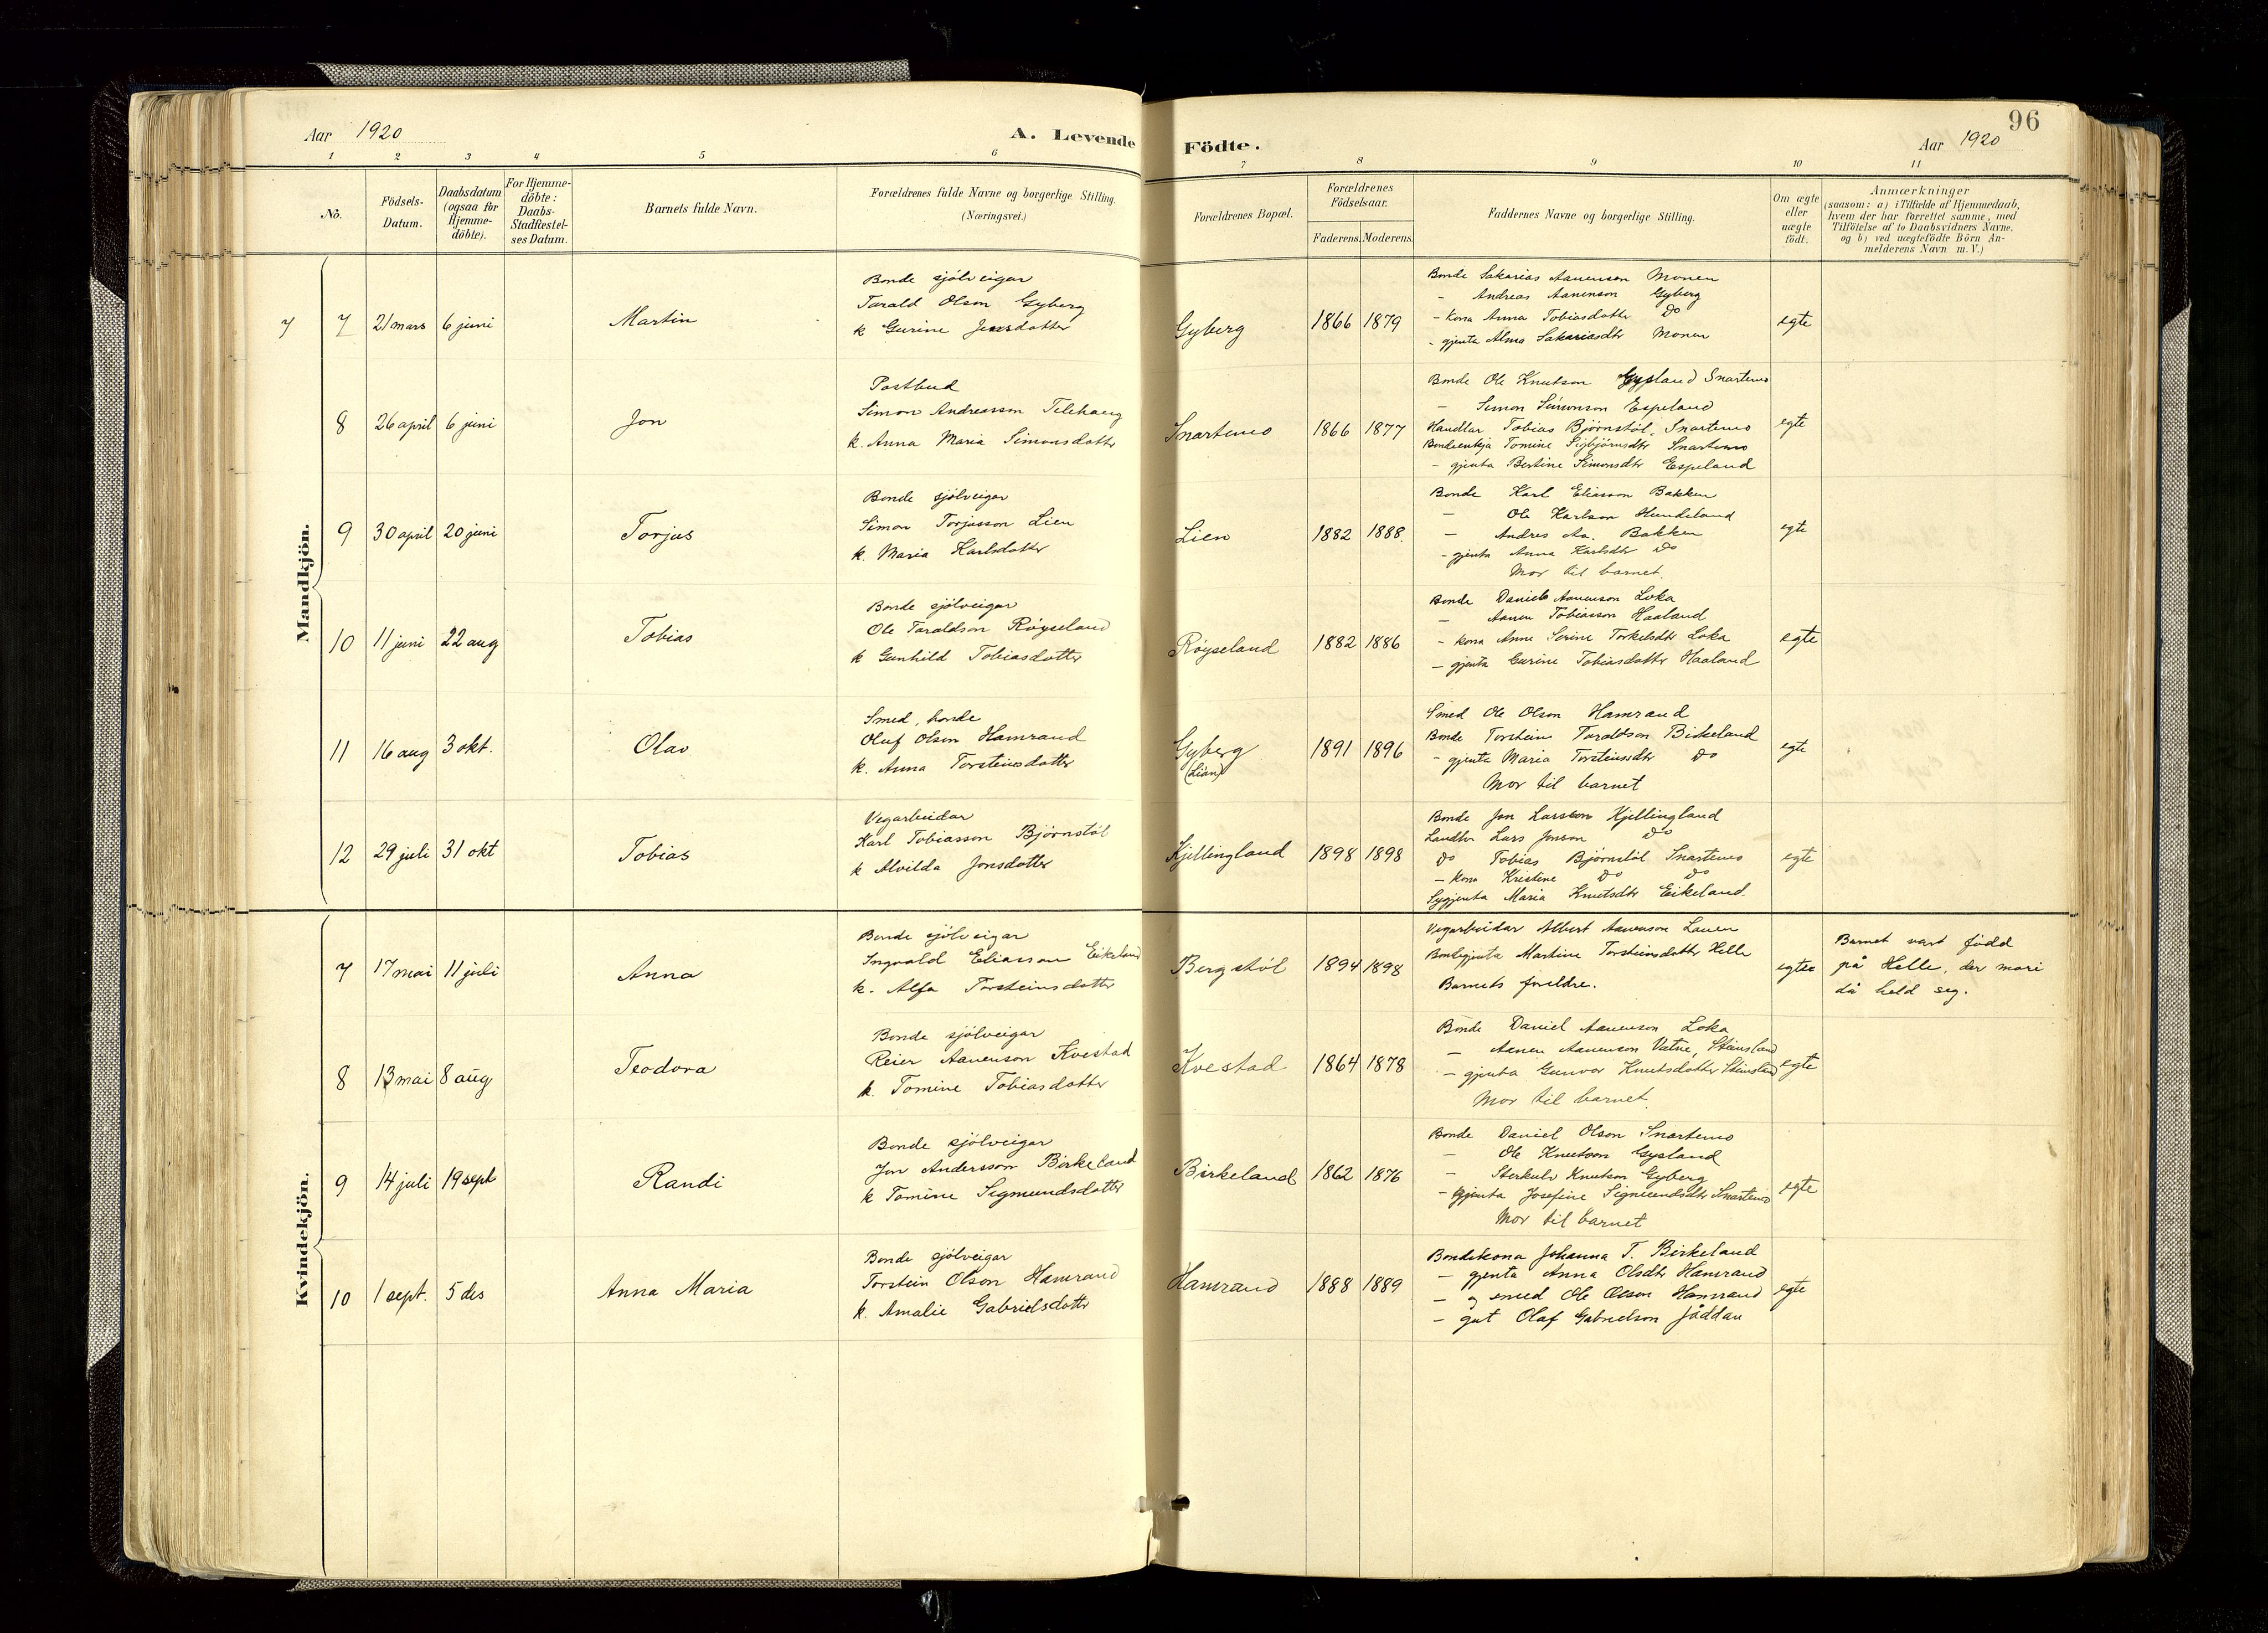 96
Aar 1920
A. Levende Födte.
Aar 1920
1 2 3 4 5 6 7 8 9 10 11
No.
Födsels-Datum.
Daabsdatum (ogsaa för Hjemme-döbte).
For Hjemme-döbte: Daabs-Stadfæstel-ses Datum.
Barnets fulde Navn.
Forældrenes fulde Navne og borgerlige Stilling.
(Næringsvei.)
Forældrenes Bopæl.
Forældrenes Födselsaar.
Faderens. Moderens.
Faddernes Navne og borgerlige Stilling.
Om ægte eller uægte födt.
Anmærkninger
(saasom: a) i Tilfælde af Hjemmedaab,
hvem der har forrettet samme, med
Tilföielse af to Daabsvidners Navne,
og b) ved uægtefödte Börn An-
melderens Navn m. V.)
Mandkjön.
7 7 21 mars 6 juni Martin
Bonde sjölveigar
Tarald Olson Gyberg
k Gurine Jensdotter
Gyberg 1866 1879
Bonde Sakarias Aanenson Monen
- Andreas Aanenson Gyberg
- kona Anna Tobiasdotter Do
- gjenta Alma Sakariasdtr Monen
egte
8 26 april 6 juni Jon
Postbud
Simon Andreasson Telehaug
k. Anna Maria Simonsdotter
Snartemo 1866 1877
Bonde Ole Knutson Gysland Snartemo
- Simon Simonson Espeland
Handlar Tobias Bjørnstøl, Snartemo
Bondeenkja Tomine Sigbjørnsdtr Snartemo
- gjenta Bertine Simonsdtr Espeland
egte
9 30 april 20 juni Torjus
Bonde sjölveigar
Simon Torjusson Lien
k. Maria Karlsdotter
Lien 1882 1888.
Bonde Karl Eliasson Bakken
- Ole Karlson Hundeland
- Andres Aa. Bakken
- gjenta Anna Karlsdtr Do
Mor til barnet.
egte
10 11 juni 22 aug Tobias
Bonde sjölveigar
Ole Taraldson Röyseland
k Gunhild Tobiasdotter
Röyseland 1882 1886
Bonde Daniel Aanenson Loka
- Aanen Tobiasson Haaland
- kona Anne Serine Torkelsdtr Loka
- gjenta Gurine Tobiasdotter Haaland
egte
11 16 aug 3 okt. Olav
Smed, bonde
Oluf Olson Hamrand
k. Anna Torsteinsdotter
Gyberg
(Lian)
1891 1896
Smed Ole Olson Hamrand
Bonde Torstein Taraldson Birkeland
- gjenta Maria Torsteinsdtr Do
Mor til barnet
egte
12 29 juli 31 okt Tobias
Vegarbeidar
Karl Tobiasson Bjørnstøl
k Alvilda Jonsdotter
Kjellingland 1898 1898
Bonde Jon Larsson Kjellingland
Landhr Lars Jonson Do
Do Tobias Bjørnstøl Snartemo
- kona Kristine Do Do
Sygjenta Maria Knutsdtr Eikeland.
egte
Kvindekjön.
7 17 mai 11 juli Anna
Bonde sjölveigar
Ingvald Eliasson Eikeland
k. Alfa Torsteinsdotter
Bergstöl 1894 1898
Vegarbeidar Albert Aanenson Lauen
Bondegjenta Martine Torsteinsdotter Helle
Barnets foreldre.
egte
Barnet vart född
på Helle, der mori
då held seg.
8 13 mai 8 aug Teodora
Bonde sjölveigar
Reier Aanenson Kvestad
k. Tomine Tobiasdotter
Kvestad 1864 1878
Bonde Daniel Aanenson Loka
- Aanen Aanenson Vatne, Steinsland
- gjenta Gunvor Knutsdotter Steinsland
Mor til barnet.
egte
9 14 juli 19 sept Randi
Bonde sjölveigar
Jon Andersson Birkeland
k Tomine Segmundsdotter
Birkeland 1862 1876
Bonde Daniel Olson Snartemo
- Ole Knutson Gysland
- Sterkulv Knutson Gyberg
- gjenta Josefine Sigmundsdtr Snartemo
Mor til barnet
egte
10 1 sept. 5 des Anna Maria
Bonde sjölveigar
Torstein Olson Hamrand
k. Amalie Gabrielsdotter
Hamrand 1888 1889
Bondekona Johanna T. Birkeland
- gjenta Anna Olsdtr Hamrand
- og smed Ole Olson Hamrand
- gut Olaf Gabrielson Jåddan
egte